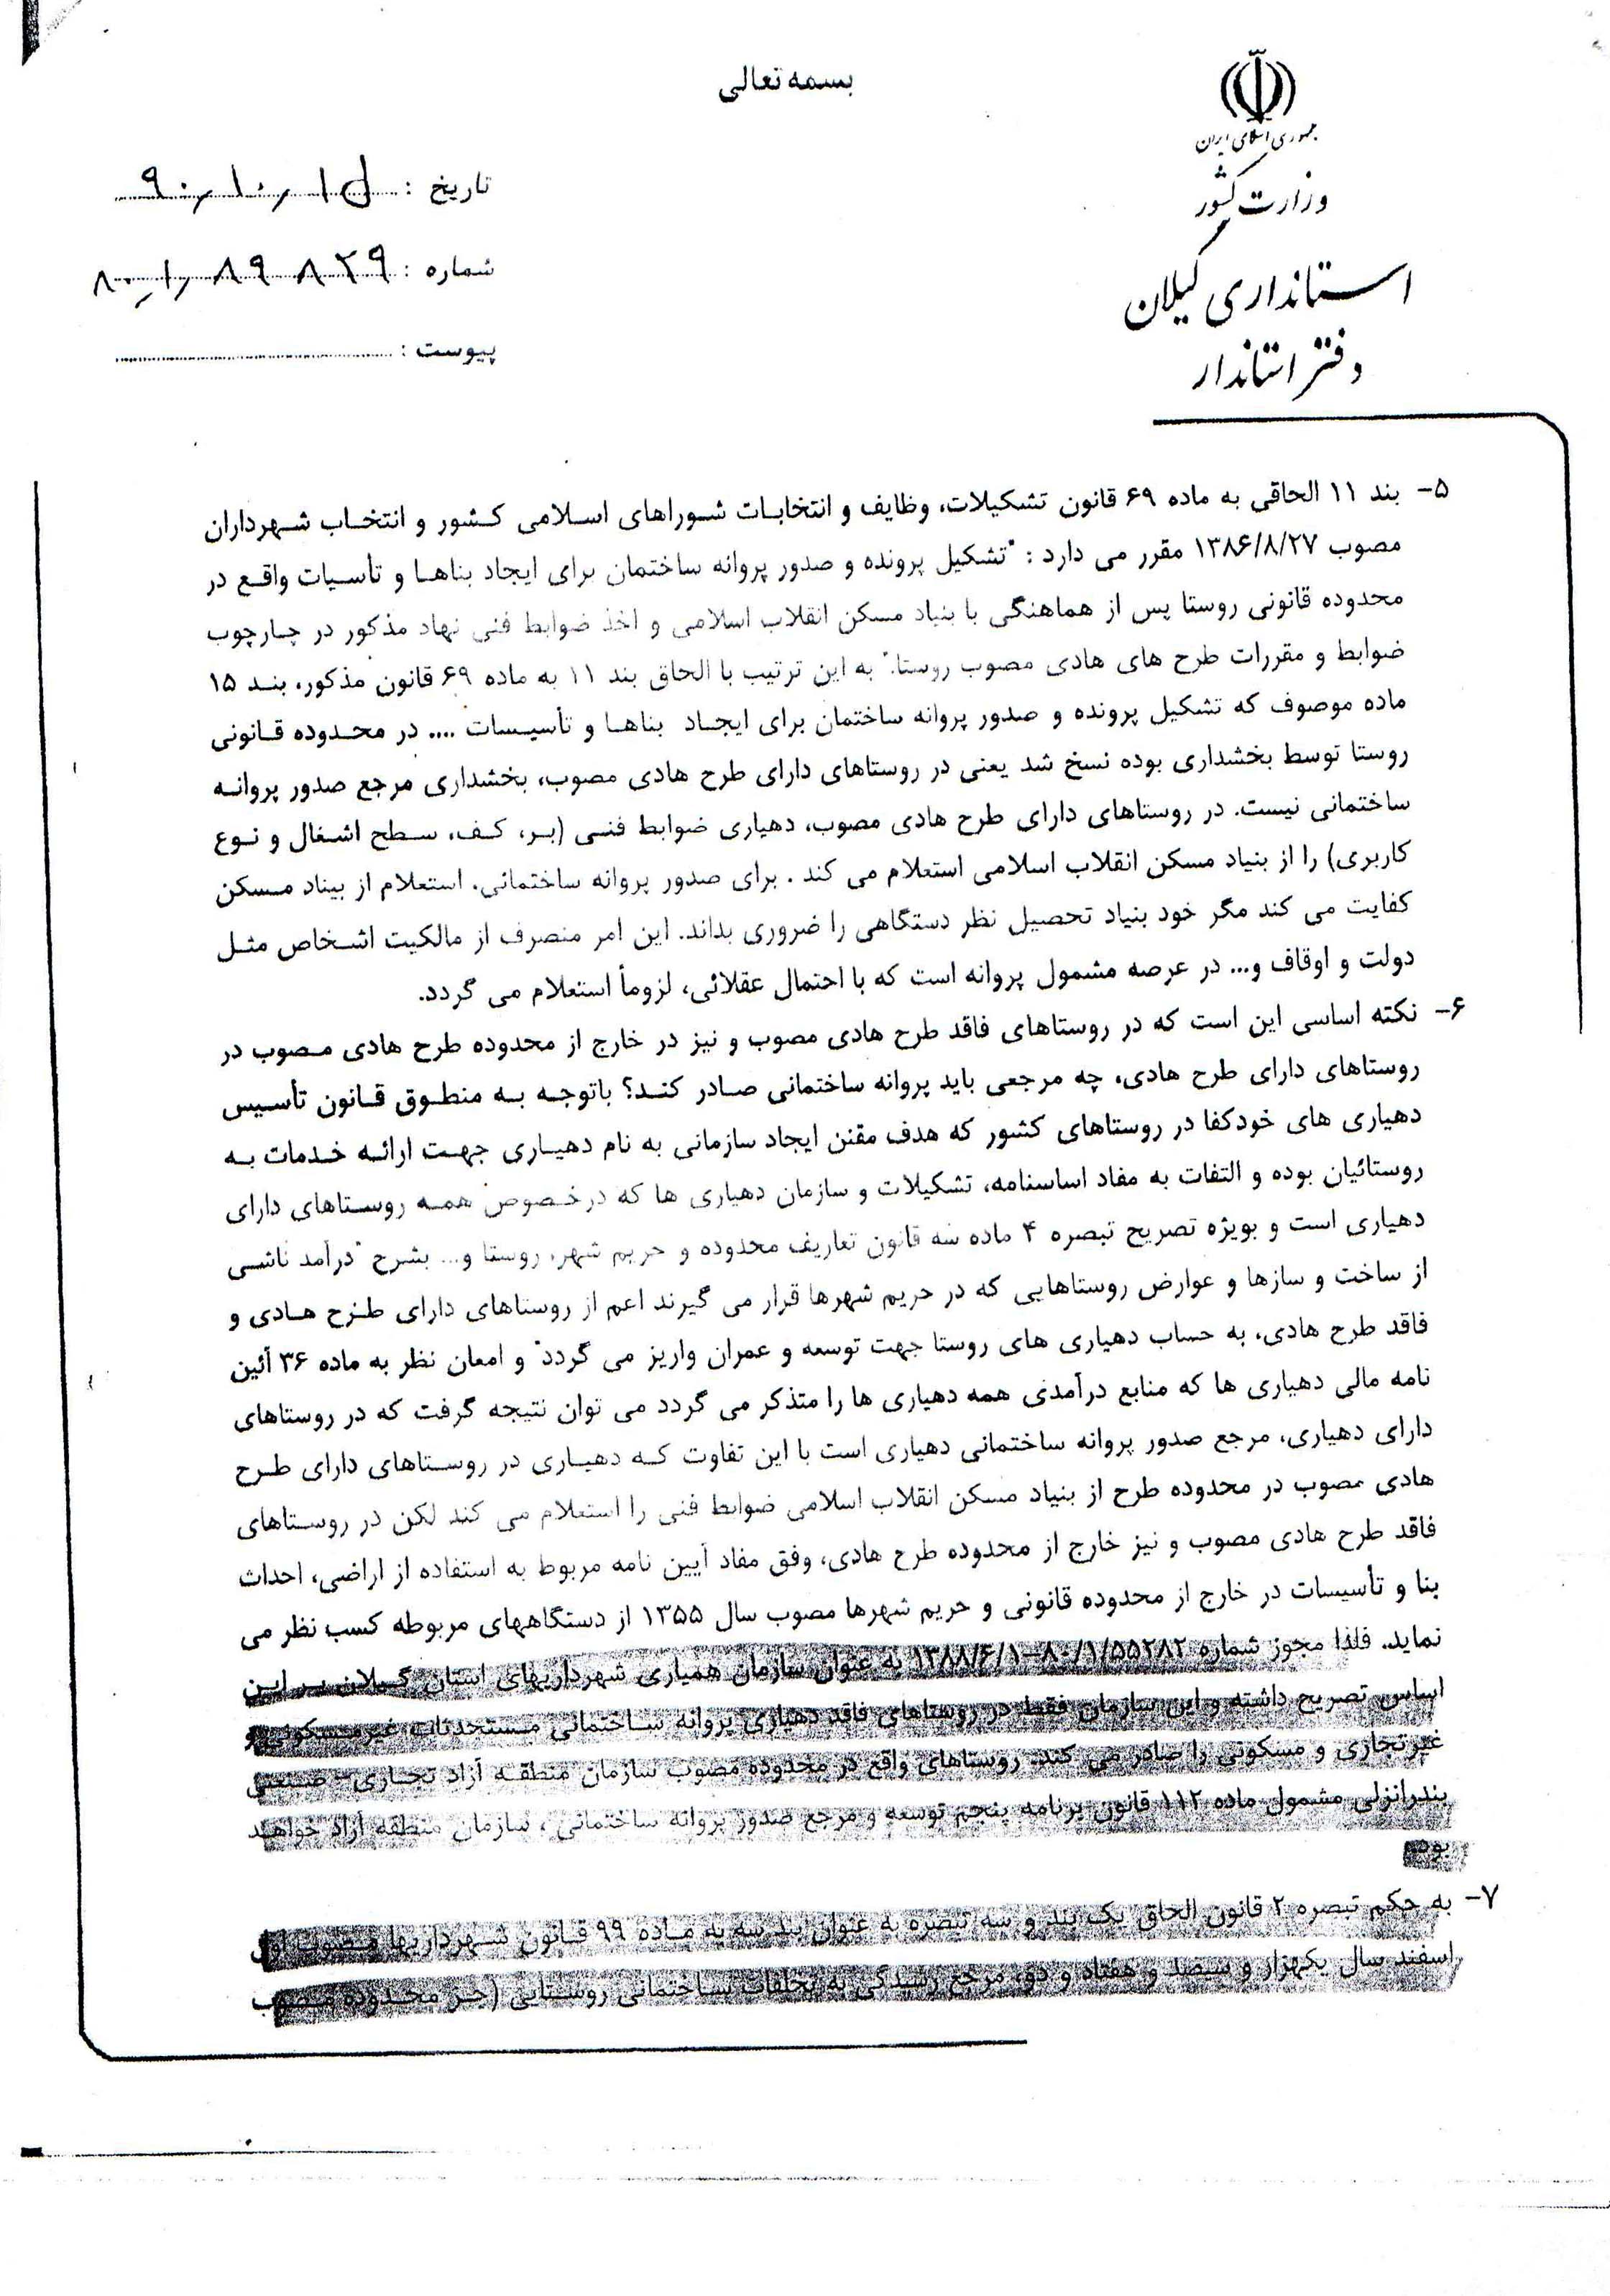 بسمه تعالی
جمهوری اسلامی ایران
وزارت کشور
استانداری گیلان
دفتر استاندار
تاریخ : ۹۰,۱۰,۱۵
شماره : ۸۰,۱,۸۹۸۲۹
پیوست :
۵- بند ۱۱ الحاقی به ماده ۶۹ قانون تشکیلات، وظایف و انتخابات شوراهای اسلامی کشور و انتخاب شهرداران
مصوب ۱۳۸۶/۸/۲۷ مقرر می دارد : "تشکیل پرونده و صدور پروانه ساختمان برای ایجاد بناها و تأسیات واقع در
محدوده قانونی روستا پس از هماهنگی با بنیاد مسکن انقلاب اسلامی و اخذ ضوابط فنی نهاد مذکور در چارچوب
ضوابط و مقررات طرح های هادی مصوب روستا." به این ترتیب با الحاق بند ۱۱ به ماده ۶۹ قانون مذکور، بند ۱۵
ماده موصوف که تشکیل پرونده و صدور پروانه ساختمان برای ایجاد بناها و تأسیسات .... در محدوده قانونی
روستا توسط بخشداری بوده نسخ شد یعنی در روستاهای دارای طرح هادی مصوب، بخشداری مرجع صدور پروانه
ساختمانی نیست. در روستاهای دارای طرح هادی مصوب، دهیاری ضوابط فنی (بر، کف، سطح اشغال و نوع
کاربری) را از بنیاد مسکن انقلاب اسلامی استعلام می کند . برای صدور پروانه ساختمانی، استعلام از بیناد مسکن
کفایت می کند مگر خود بنیاد تحصیل نظر دستگاهی را ضروری بداند. این امر منصرف از مالکیت اشخاص مثل
دولت و اوقاف و... در عرصه مشمول پروانه است که با احتمال عقلائی، لزوماً استعلام می گردد.
۶- نکته اساسی این است که در روستاهای فاقد طرح هادی مصوب و نیز در خارج از محدوده طرح هادی مصوب در
روستاهای دارای طرح هادی، چه مرجعی باید پروانه ساختمانی صادر کند؟ باتوجه به منطوق قانون تأسیس
دهیاری های خودکفا در روستاهای کشور که هدف مقنن ایجاد سازمانی به نام دهیاری جهت ارائه خدمات به
روستائیان بوده و التفات به مفاد اساسنامه، تشکیلات و سازمان دهیاری ها که درخصوص همه روستاهای دارای
دهیاری است و بویژه تصریح تبصره ۴ ماده سه قانون تعاریف محدوده و حریم شهر، روستا و... بشرح "درآمد ناشی
از ساخت و سازها و عوارض روستاهایی که در حریم شهرها قرار می گیرند اعم از روستاهای دارای طرح هادی و
فاقد طرح هادی، به حساب دهیاری های روستا جهت توسعه و عمران واریز می گردد" و امعان نظر به ماده ۳۶ آئین
نامه مالی دهیاری ها که منابع درآمدی همه دهیاری ها را متذکر می گردد می توان نتیجه گرفت که در روستاهای
دارای دهیاری، مرجع صدور پروانه ساختمانی دهیاری است با این تفاوت که دهیاری در روستاهای دارای طرح
هادی مصوب در محدوده طرح از بنیاد مسکن انقلاب اسلامی ضوابط فنی را استعلام می کند لکن در روستاهای
فاقد طرح هادی مصوب و نیز خارج از محدوده طرح هادی، وفق مفاد آیین نامه مربوط به استفاده از اراضی، احداث
بنا و تأسیسات در خارج از محدوده قانونی و حریم شهرها مصوب سال ۱۳۵۵ از دستگاههای مربوطه کسب نظر می
نماید. فلذا مجوز شماره ۸۰/۱/۵۵۲۸۲-۱۳۸۸/۶/۱ به عنوان سازمان همیاری شهرداریهای استان گیلان بر این
اساس تصریح داشته و این سازمان فقط در روستاهای فاقد دهیاری پروانه ساختمانی مستحدثات غیرمسکونی و
غیرتجاری و مسکونی را صادر می کند. روستاهای واقع در محدوده مصوب سازمان منطقه آزاد تجاری- صنعتی
بندرانزلی مشمول ماده ۱۱۲ قانون برنامه پنجم توسعه و مرجع صدور پروانه ساختمانی ، سازمان منطقه آزاد خواهند
بود.
۷- به حکم تبصره ۲ قانون الحاق یک بند و سه تبصره به عنوان بند سه به ماده ۹۹ قانون شهرداریها مصوب اول
اسفند سال یکهزار و سیصد و هفتاد و دو، مرجع رسیدگی به تخلفات ساختمانی روستایی (جز محدوده مصوب